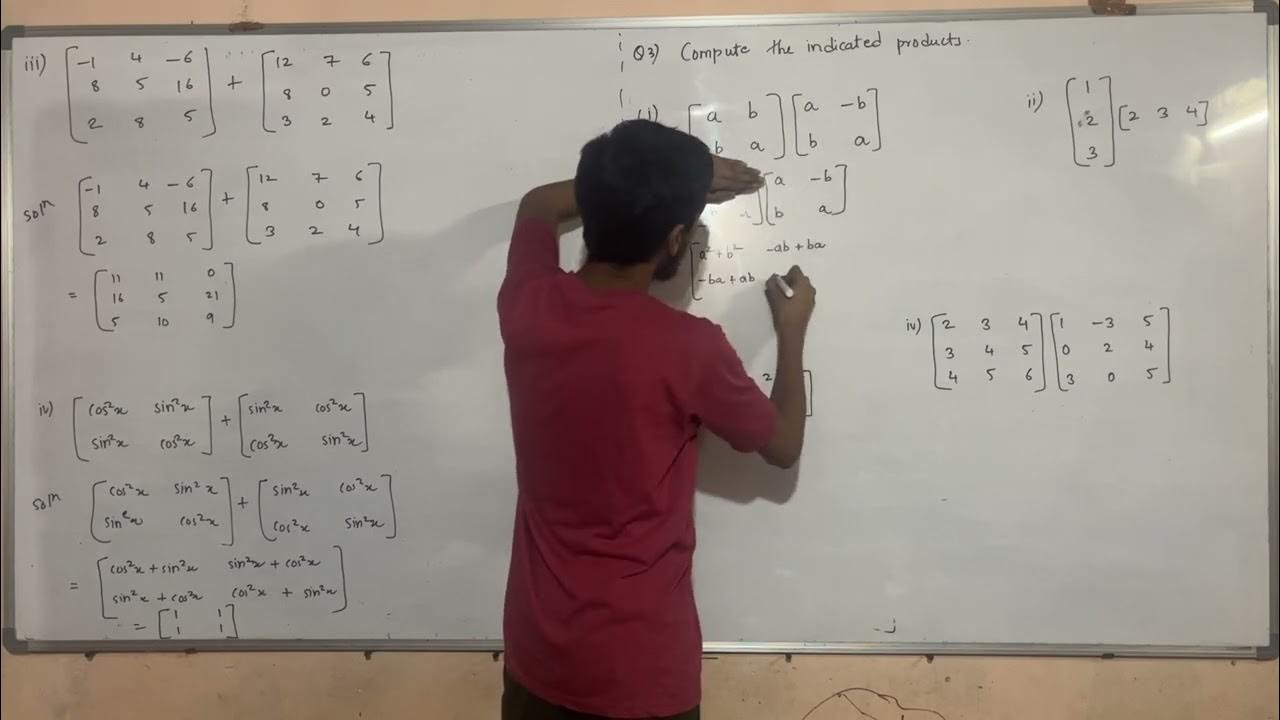 iii) [-1 4 -6] + [12 7 6]
[8 5 16] [8 0 5]
[2 8 5] [3 2 4]
Soln [-1 4 -6] + [12 7 6]
[8 5 16] [8 0 5]
[2 8 5] [3 2 4]
= [11 11 0]
[16 5 21]
[5 10 9]
iv) [cos²x sin²x] + [sin²x cos²x]
[sin²x cos²x] [cos²x sin²x]
Soln [cos²x sin²x] + [sin²x cos²x]
[sin²x cos²x] [cos²x sin²x]
= [cos²x + sin²x sin²x + cos²x]
[sin²x + cos²x cos²x + sin²x]
= [1 1]
[1 1]
Q3) Compute the indicated products.
(i) [a b] [a -b]
b a] [b a]
[a -b]
[b a]
[a² + b² -ab + ba
-ba + ab
2
ii) [1] [2 3 4]
[2]
[3]
iv) [2 3 4] [1 -3 5]
[3 4 5] [0 2 4]
[4 5 6] [3 0 5]